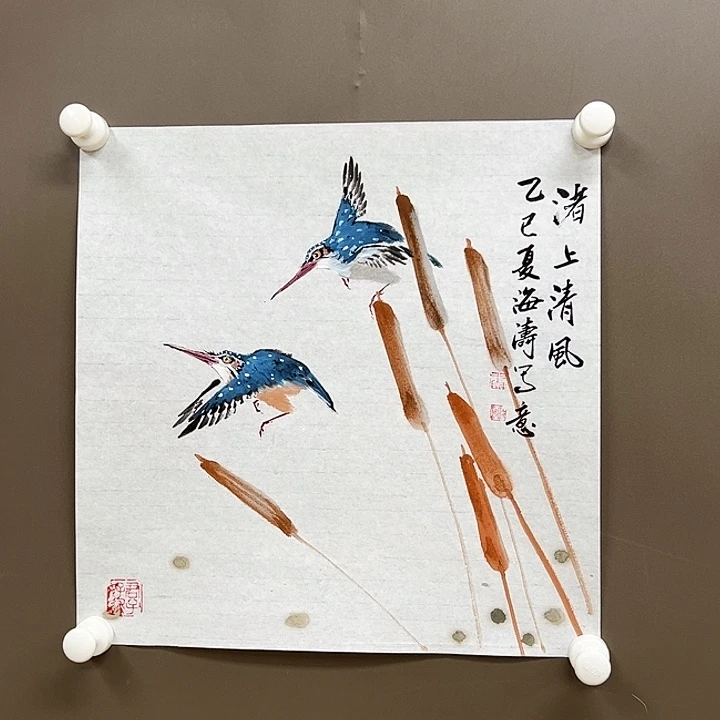 渚上清風
乙巳夏海濤写意